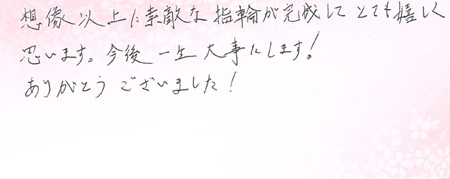 想像以上に素敵な指輪が完成してとても嬉しく
思います。今後一生大事にします!
ありがとうございました!